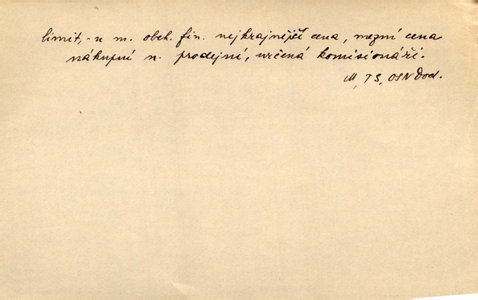 limit, -u m. obch. fin. nejkrajnější cena, mezní cena
nákupní n. prodejní, určená komisionáři.
M, TS, OSN Dod.